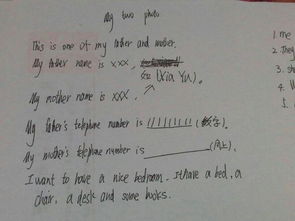 My two photo
This is one of my father and mother.
My father name is xxx,
(Xia Yu)。
My mother name is xxx,
My father's telephone number is 11111111 (数字)。
My mother's telephone number is ________ (同上)。
I want to have a nice bedroom. It have a bed, a
chair, a desk and some books.
1. me
2. They
3. sh
4.
5.